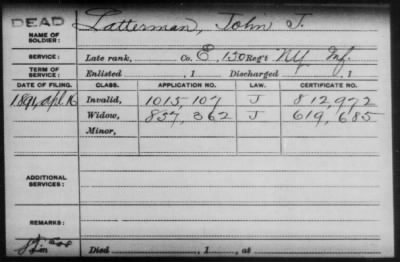 DEAD
NAME OF SOLDIER: Latterman, John J.
SERVICE: Late rank, Co. E, 150 Reg't NY Inf.
TERM OF SERVICE: Enlisted , 1 Discharged , 1
DATE OF FILING. CLASS. APPLICATION NO. LAW. CERTIFICATE NO.
1891, Apl. 16 Invalid, 1015,107 J 812,972
Widow, 857,362 J 619,685
Minor,
ADDITIONAL SERVICES:
REMARKS:
Died , 1 , at